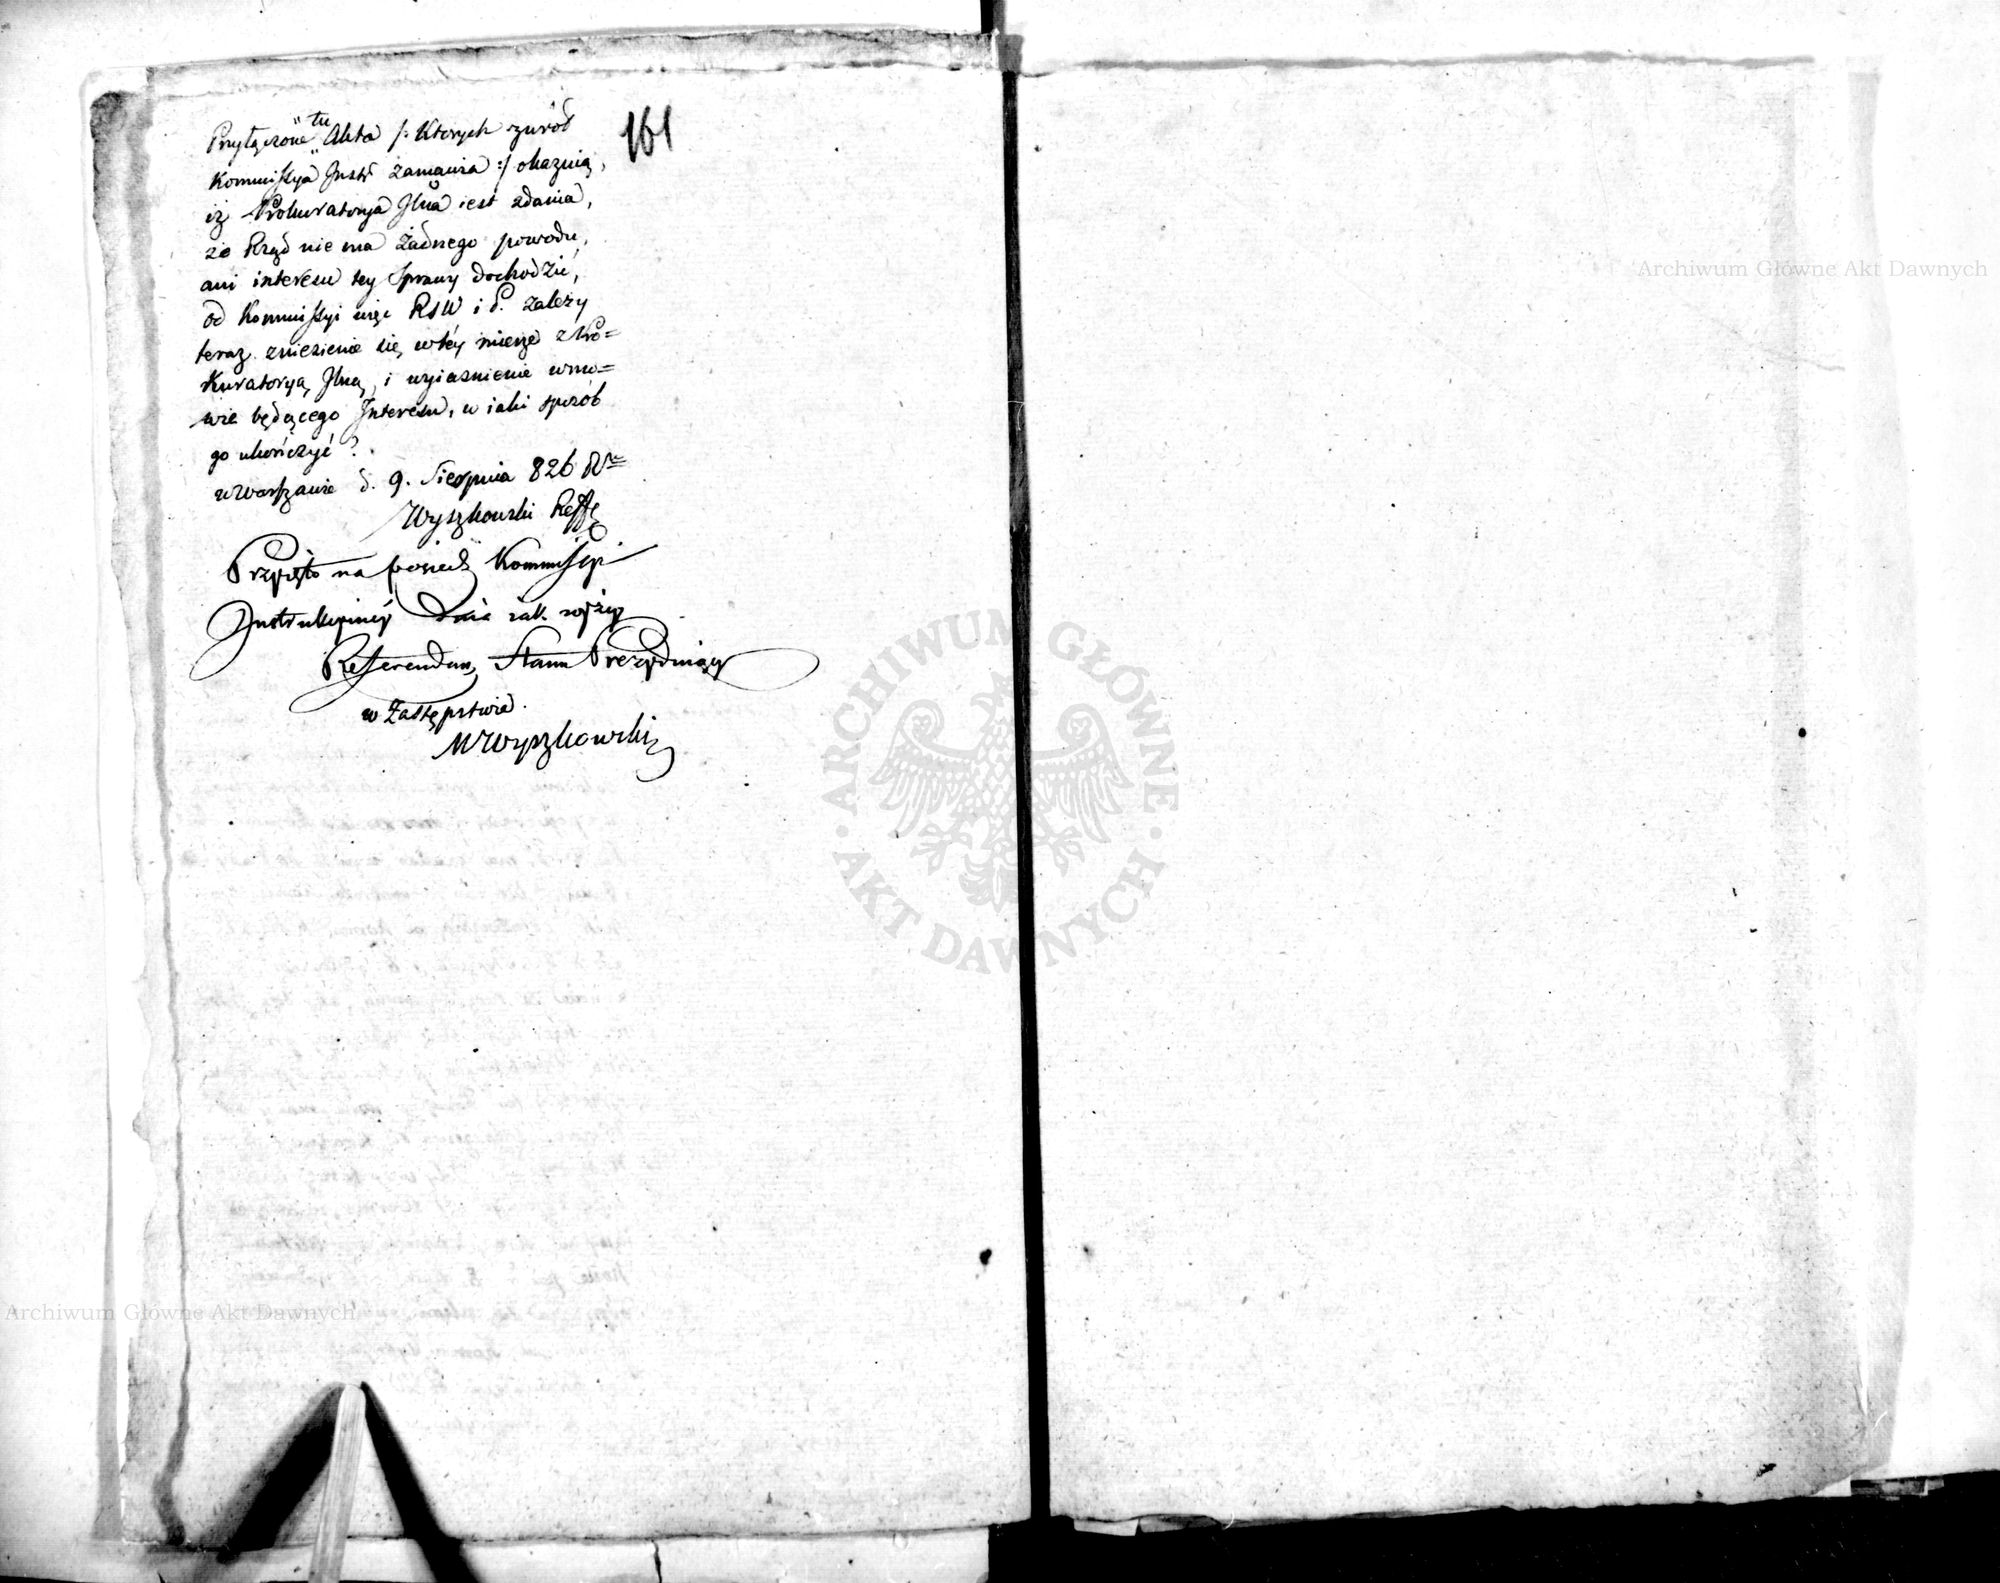 161
Przyłączone tu Akta /: Których zwrót
Kommissya Instr zamawia :/ okazuią,
iż Prokuratorya Jlna iest zdania,
że Rząd nie ma żadnego powodu,
ani interesu tey Sprawy dochodzić,
od Kommissyi więc RSW i P. zależy
teraz zniesienie się w téy mierze z Pro=
Kuratoryą Jlną, i wyiaśnienie w mo=
wie będącego Interesu, w iaki sposób
go ukończyć?
w Warszawie d. 9. Sierpnia 826 R
Wyszkowski
Przyięto na posiedz Kommissyi
Instrukcyinéy Dnia iak wyżey
Referendarz Stanu Prezyduiący
w Zastępstwie.
M Wyszkowski
Archiwum Główne Akt Dawnych
ARCHIWUM GŁÓWNE
AKT DAWNYCH
Archiwum Główne Akt Dawnych